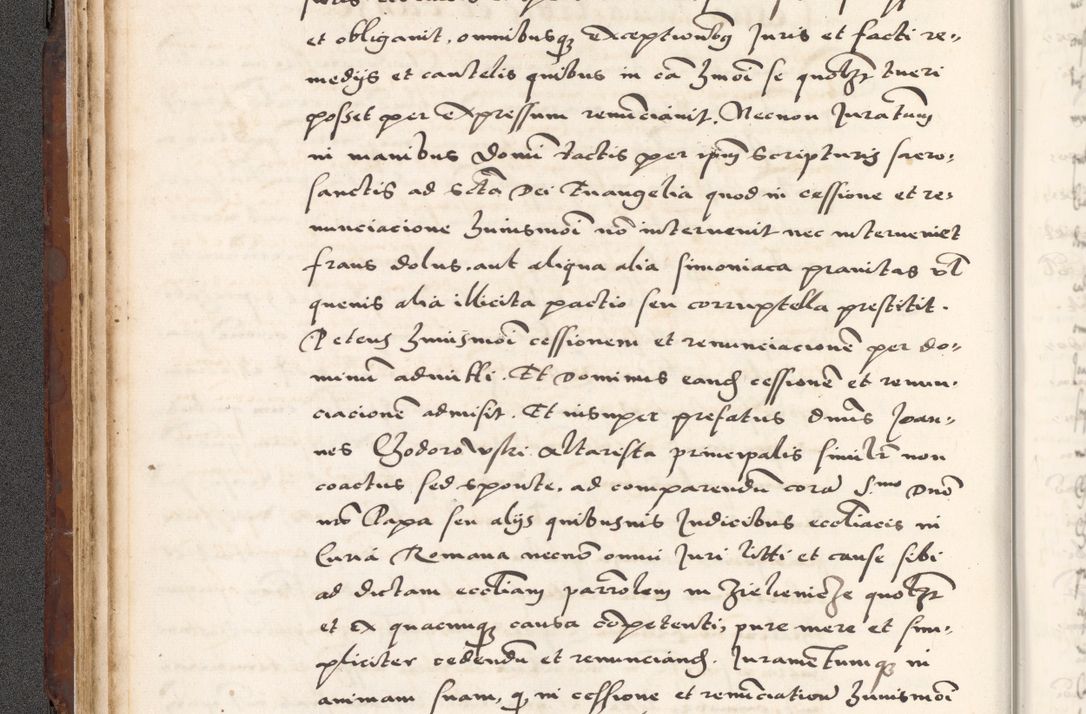 et obligauit, omnibusq; Exceptionibꝫ Juris et facti re=
medijs et cautelis quibus in ea hmōi se quolꝫt tueri
posset per Expressum renunciauit. Necnon Juratam
in manibus Domī tactis per ipm̄ scripturis sacro=
sanctis ad sctā Dei Euangelia quod in cessione et re=
nunciacione huiusmōi nō interuenit nec interueniet
fraus dolus, aut aliqua alia simoniaca prauitas vl
queuis alia illicita pactio seu corruptella prestitit.
Petens huiusmōi cessionem et renunciacionē per do=
minū admitti. Et Dominus eandē cessionē et renun=
ciacionē admisit. Et insuper prefatus dnūs Joan=
nes Chodorowski Altarista principalis simulr̄ non
coactus sed sponte, ad comparendū corā S.mo Dnō
nrō Papa seu alijs quibusuis Judicibus eccliacis in
Curiá Romana necnō omni Juri litti et cause sibi
ad dictam eccliam parrōlem in Zielienicze quolꝫt
et Ex quacunq; causa cōpetenti, pure mere et sim=
pliciter cedendū et renunciandū. Juramentumq; in
animam suam, q̨ in cessione et renūciationē huiusmōi